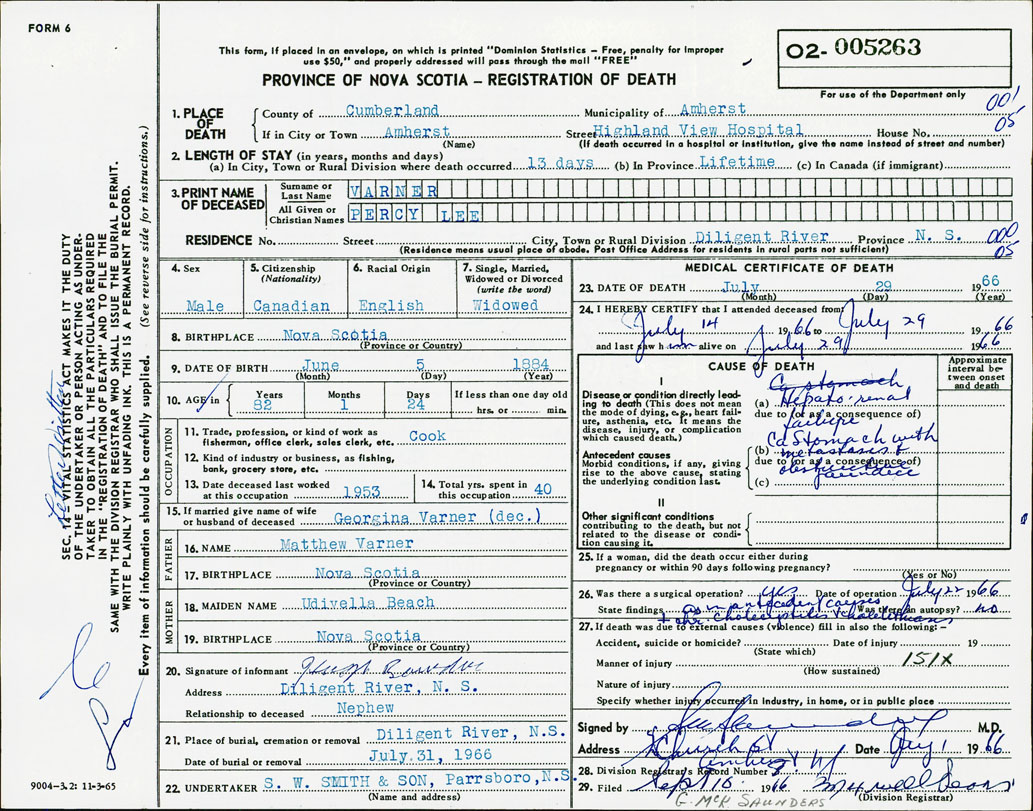 FORM 6
This form, if placed in an envelope, on which is printed "Dominion Statistics – Free, penalty for improper
use $50," and properly addressed will pass through the mail "FREE"
O2- 005263
PROVINCE OF NOVA SCOTIA – REGISTRATION OF DEATH
For use of the Department only
1. PLACE OF DEATH
County of Cumberland Municipality of Amherst 001
If in City or Town Amherst Street Highland View Hospital House No. 05
(Name) (If death occurred in a hospital or institution, give the name instead of street and number)
2. LENGTH OF STAY (in years, months and days)
(a) In City, Town or Rural Division where death occurred 13 days (b) In Province Lifetime (c) In Canada (if immigrant)
3. PRINT NAME OF DECEASED
Surname or Last Name VARNER
All Given or Christian Names PERCY LEE
RESIDENCE No. Street City, Town or Rural Division Diligent River Province N. S. 000
(Residence means usual place of abode. Post Office Address for residents in rural parts not sufficient) 05
4. Sex
Male
5. Citizenship
(Nationality)
Canadian
6. Racial Origin
English
7. Single, Married,
Widowed or Divorced
(write the word)
Widowed
8. BIRTHPLACE Nova Scotia
(Province or Country)
9. DATE OF BIRTH June 5 1884
(Month) (Day) (Year)
10. AGE in
Years Months Days If less than one day old
82 1 24 hrs. or min.
OCCUPATION
11. Trade, profession, or kind of work as
fisherman, office clerk, sales clerk, etc. Cook
12. Kind of industry or business, as fishing,
bank, grocery store, etc.
13. Date deceased last worked
at this occupation 1953
14. Total yrs. spent in
this occupation 40
15. If married give name of wife
or husband of deceased Georgina Varner (dec.)
FATHER
16. NAME Matthew Varner
17. BIRTHPLACE Nova Scotia
(Province or Country)
MOTHER
18. MAIDEN NAME Udivella Beach
19. BIRTHPLACE Nova Scotia
(Province or Country)
20. Signature of informant
Address Diligent River, N. S.
Relationship to deceased Nephew
21. Place of burial, cremation or removal Diligent River, N.S.
Date of burial or removal July 31, 1966
22. UNDERTAKER S. W. SMITH & SON, Parrsboro, N.S.
(Name and address)
MEDICAL CERTIFICATE OF DEATH
23. DATE OF DEATH July 29 1966
(Month) (Day) (Year)
24. I HEREBY CERTIFY that I attended deceased from
July 14 1966 to July 29 1966
and last saw him alive on July 29 1966
CAUSE OF DEATH
Approximate interval between onset and death
I
Disease or condition directly leading to death (This does not mean
the mode of dying, e.g., heart failure, asthenia, etc. It means the
disease, injury, or complication
which caused death.)
Ca stomach
(a) Hepato-renal
due to (or as a consequence of)
failure
Antecedent causes
Morbid conditions, if any, giving
rise to the above cause, stating
the underlying condition last.
Ca Stomach with
(b) metastasis &
due to (or as a consequence of)
obstructive
(c) jaundice
II
Other significant conditions
contributing to the death, but not
related to the disease or condition causing it.
25. If a woman, did the death occur either during
pregnancy or within 90 days following pregnancy?
(Yes or No)
26. Was there a surgical operation? yes Date of operation July 22 1966
State findings as in antecedent causes Was there an autopsy? no
+ chr. cholecystitis + cholelithiasis
27. If death was due to external causes (violence) fill in also the following:–
Accident, suicide or homicide? Date of injury 19
(State which)
Manner of injury 151X
(How sustained)
Nature of injury
Specify whether injury occurred in industry, in home, or in public place
Signed by M.D.
Address Church St Date Aug 1 1966
Amherst NS
28. Division Registrar's Record Number
29. Filed Sept 10 1966
(Division Registrar)
G. McK SAUNDERS
SEC. 14 – VITAL STATISTICS ACT MAKES IT THE DUTY
OF THE UNDERTAKER OR PERSON ACTING AS UNDERTAKER TO OBTAIN ALL THE PARTICULARS REQUIRED
IN THE "REGISTRATION OF DEATH" AND TO FILE THE
SAME WITH THE DIVISION REGISTRAR WHO SHALL ISSUE THE BURIAL PERMIT.
WRITE PLAINLY WITH UNFADING INK. THIS IS A PERMANENT RECORD.
Every item of information should be carefully supplied. (See reverse side for instructions.)
9004-3.2: 11-3-65